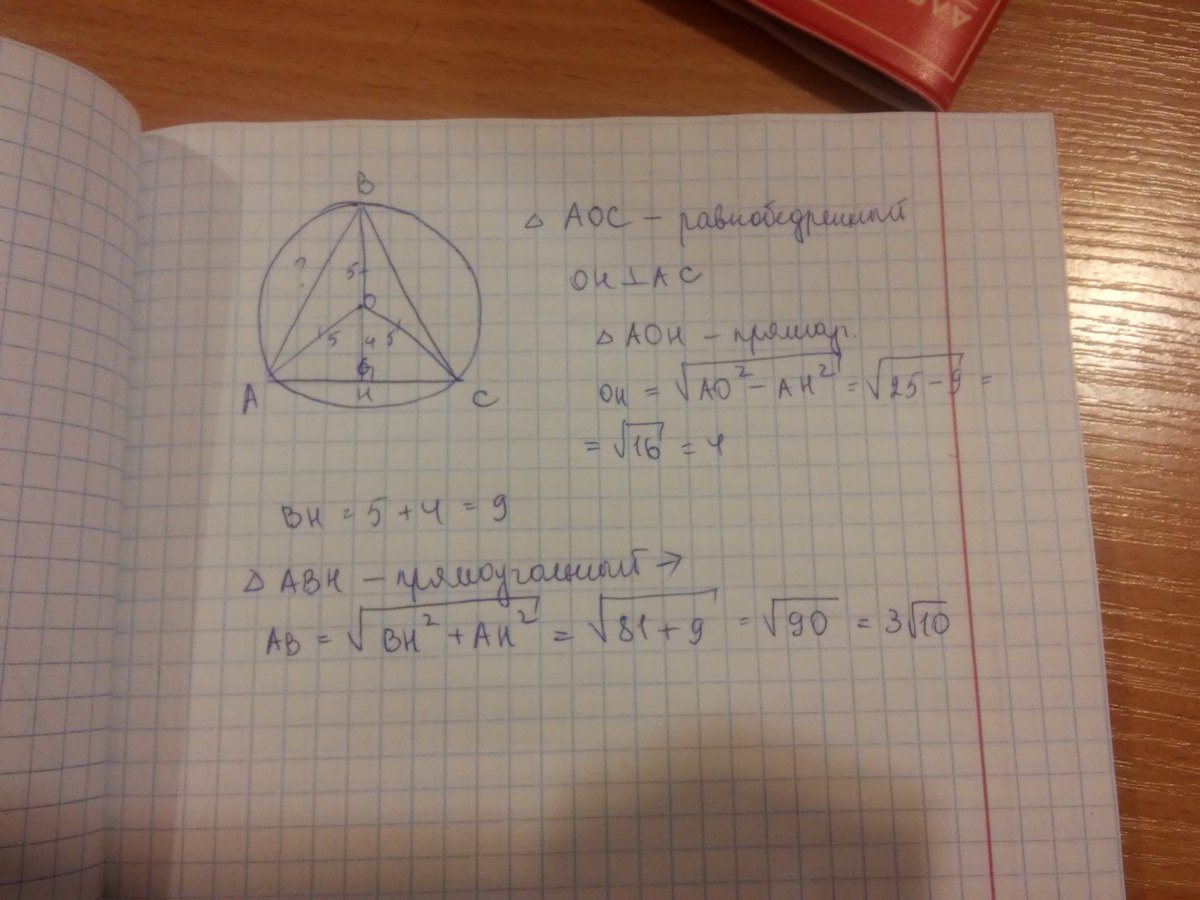 B
? 5
O
5 4 5
6
A H C
△ AOC – равнобедренный
OH ⊥ AC
△ AOH – прямоуг.
OH = √(AO² – AH²) = √(25 – 9) =
= √16 = 4
BH = 5 + 4 = 9
△ ABH – прямоугольный →
AB = √(BH² + AH²) = √(81 + 9) = √90 = 3√10